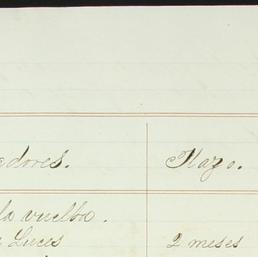 adores. Plazo.
la vuelta.
Luces 2 meses